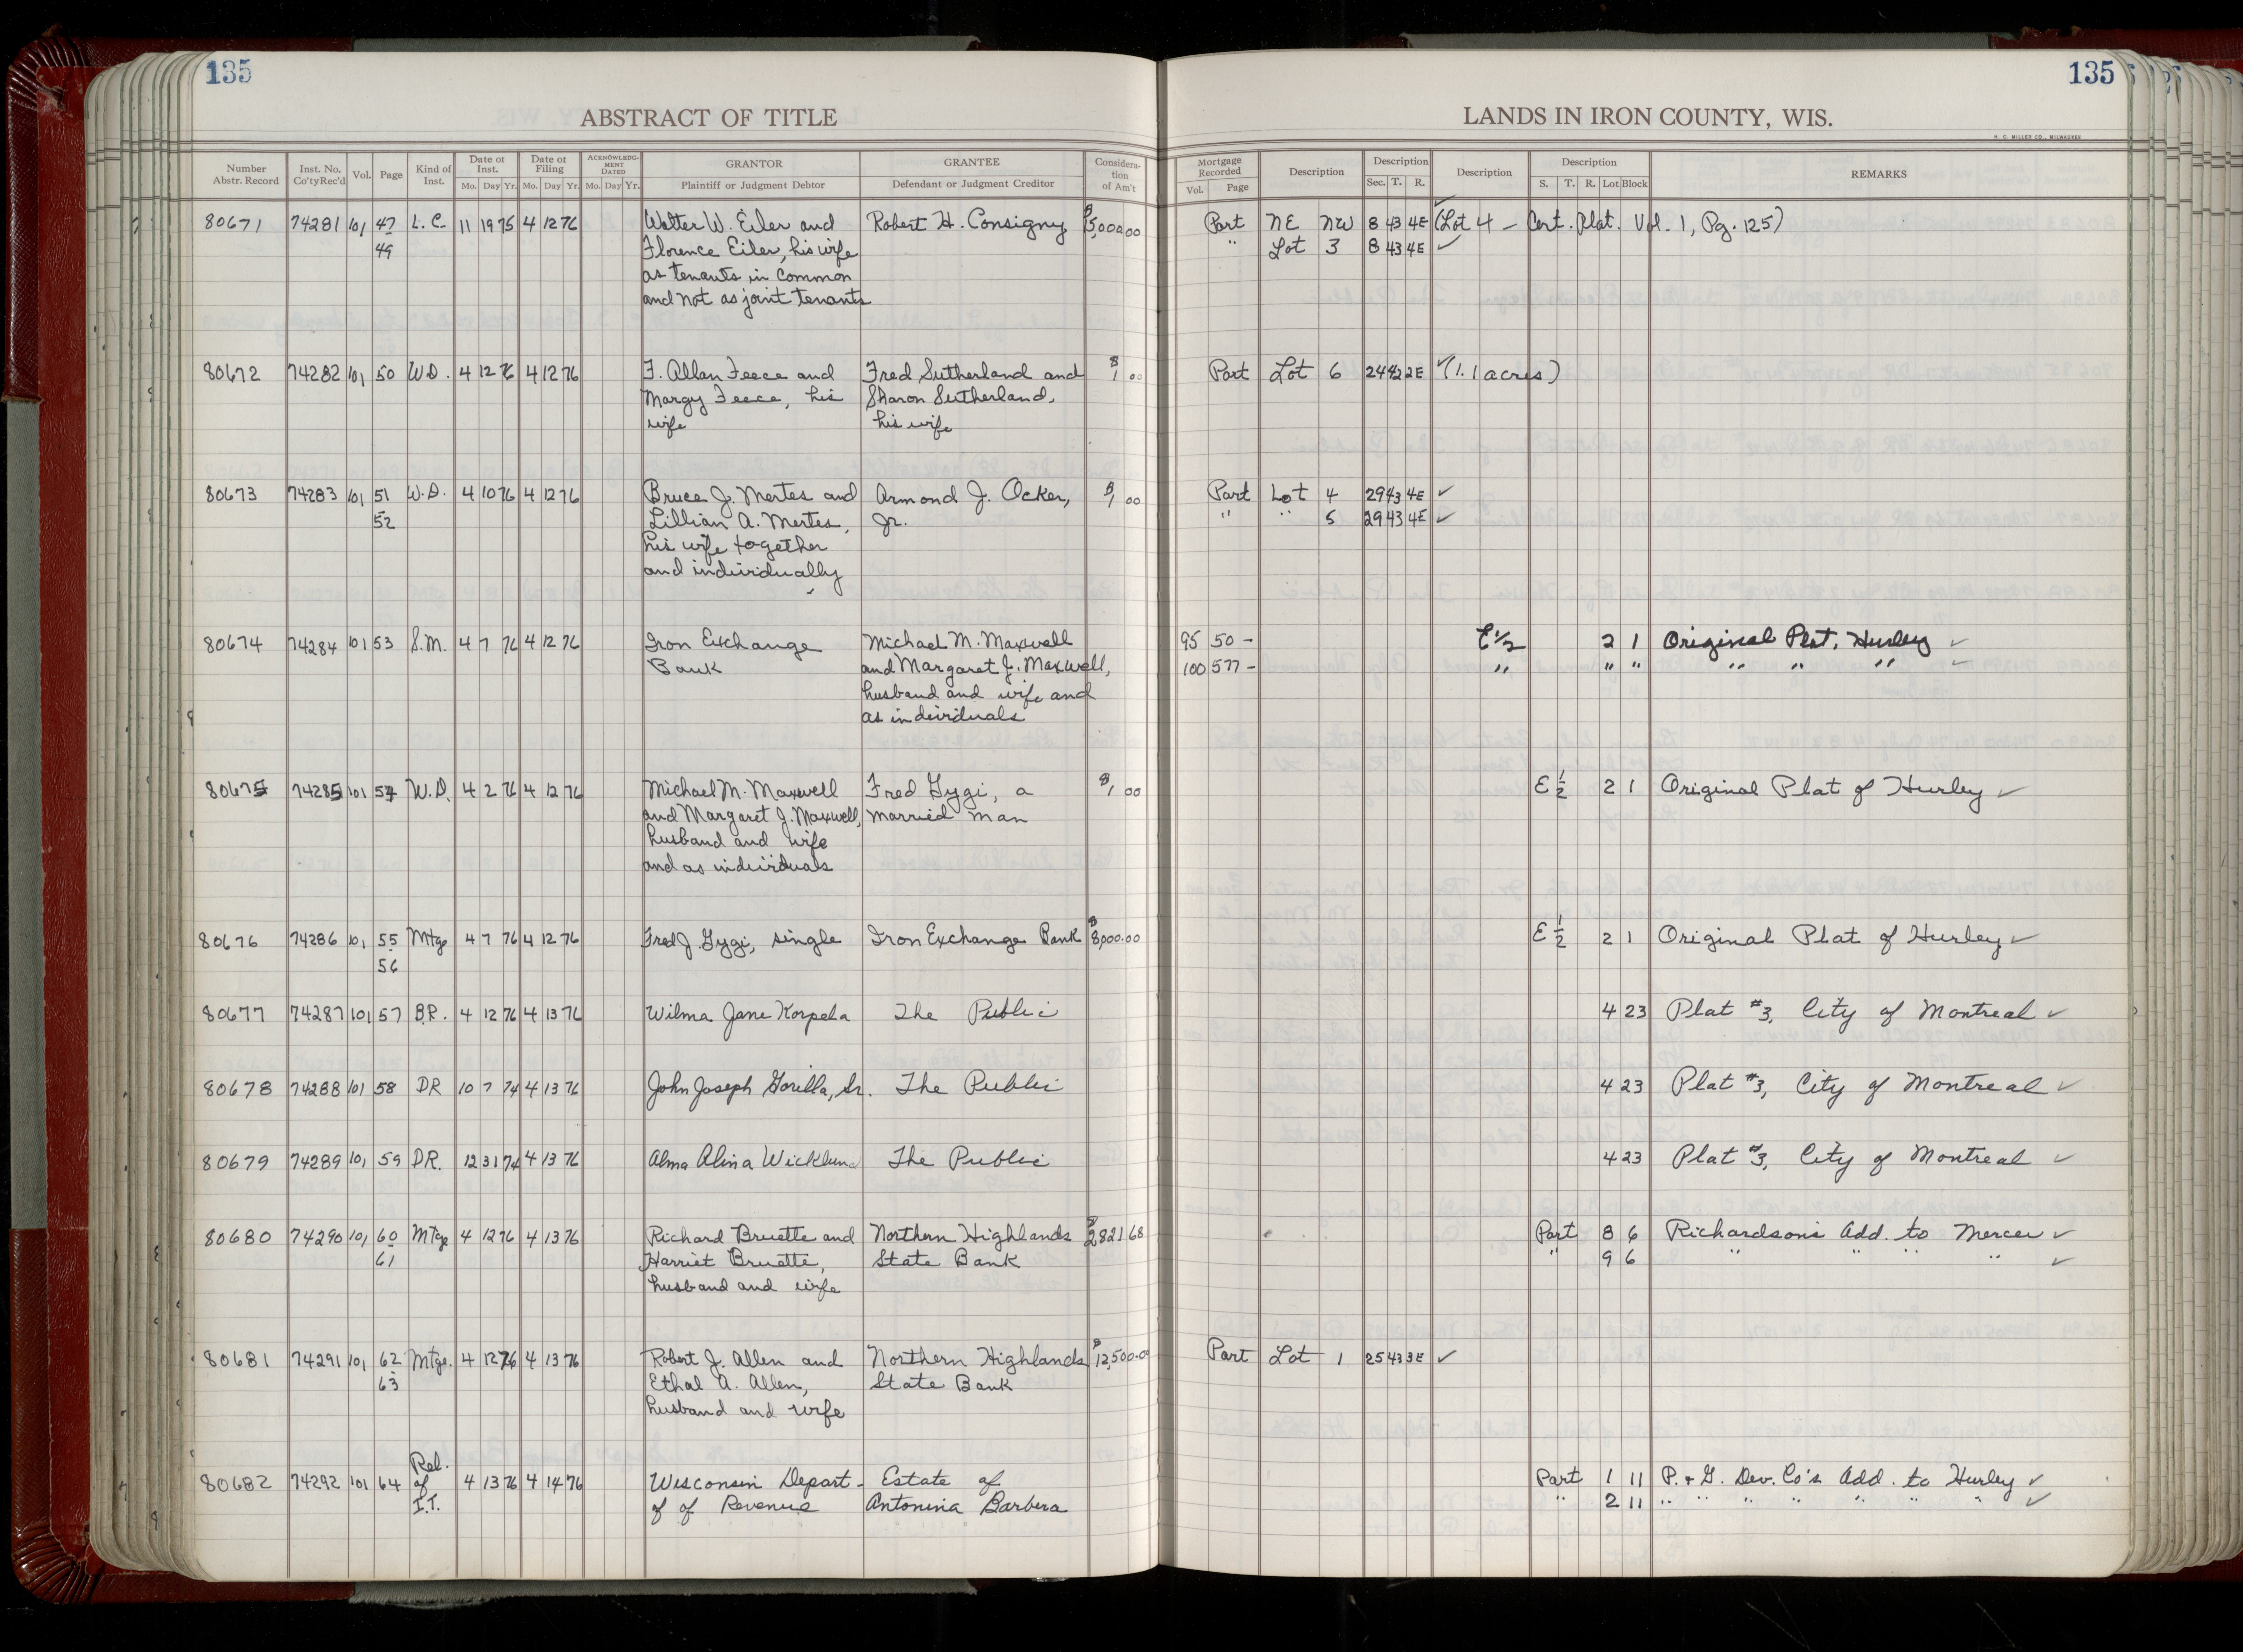 135
135
ABSTRACT OF TITLE
LANDS IN IRON COUNTY, WIS.
H. C. MILLER CO., MILWAUKEE
Number Abstr. Record | Inst. No. Co'tyRec'd | Vol. | Page | Kind of Inst. | Date of Inst. Mo. Day Yr. | Date of Filing Mo. Day Yr. | ACKNOWLEDGMENT DATED Mo. Day Yr. | GRANTOR Plaintiff or Judgment Debtor | GRANTEE Defendant or Judgment Creditor | Consideration of Am't | Mortgage Recorded Vol. Page | Description | Description Sec. T. R. | Description | Description S. T. R. Lot Block | REMARKS
80671 74281 101 47 L.C. 11 19 75 4 12 76 Walter W. Eiler and Robert H. Consigny $5,000.00 Part NE NW 8 43 4E ✓ (Lot 4 - Cert. Plat. Vol. 1, Pg. 125)
49 Florence Eiler, his wife " Lot 3 8 43 4E ✓
as tenants in common
and not as joint tenants
80672 74282 101 50 W.D. 4 12 76 4 12 76 F. Allan Feece and Fred Sutherland and $1 00 Part Lot 6 24 42 2E ✓ (1.1 acres)
Margy Feece, his Sharon Sutherland,
wife his wife
80673 74283 101 51 W.D. 4 10 76 4 12 76 Bruce J. Mertes and Armond J. Ocker, $1 00 Part Lot 4 29 43 4E ✓
52 Lillian A. Mertes, Jr. " " 5 29 43 4E ✓
his wife together
and individually
80674 74284 101 53 S.M. 4 7 76 4 12 76 Iron Exchange Michael M. Maxwell 95 50 - E½ 2 1 Original Plat, Hurley ✓
Bank and Margaret J. Maxwell, 100 577 - " " " " " " ✓
husband and wife and
as individuals
80675 74285 101 54 W.D. 4 2 76 4 12 76 Michael M. Maxwell Fred Gygi, a $1 00 E ½ 2 1 Original Plat of Hurley ✓
and Margaret J. Maxwell, married man
husband and wife
and as individuals
80676 74286 101 55 Mtge 4 7 76 4 12 76 Fred J. Gygi, single Iron Exchange Bank $8,000.00 E ½ 2 1 Original Plat of Hurley ✓
56
80677 74287 101 57 B.R. 4 12 76 4 13 76 Wilma Jane Korpela The Public 4 23 Plat #3, City of Montreal ✓
80678 74288 101 58 DR 10 7 74 4 13 76 John Joseph Gorilla, Sr. The Public 4 23 Plat #3, City of Montreal ✓
80679 74289 101 59 D.R. 12 31 74 4 13 76 Alma Alina Wicklund The Public 4 23 Plat #3, City of Montreal ✓
80680 74290 101 60 Mtge 4 12 76 4 13 76 Richard Bruette and Northern Highlands $2821 68 Part 8 6 Richardson's Add. to Mercer ✓
61 Harriet Bruette, State Bank " 9 6 " " " " ✓
husband and wife
80681 74291 101 62 Mtge. 4 12 76 4 13 76 Robert J. Allen and Northern Highlands $12,500.0 Part Lot 1 25 43 3E ✓
63 Ethal A. Allen, State Bank
husband and wife
80682 74292 101 64 Rel. of I.T. 4 13 76 4 14 76 Wisconsin Depart- Estate of Part 1 11 P. & G. Dev. Co's Add. to Hurley ✓
of of Revenue Antonina Barbera " 2 11 " " " " " " " ✓